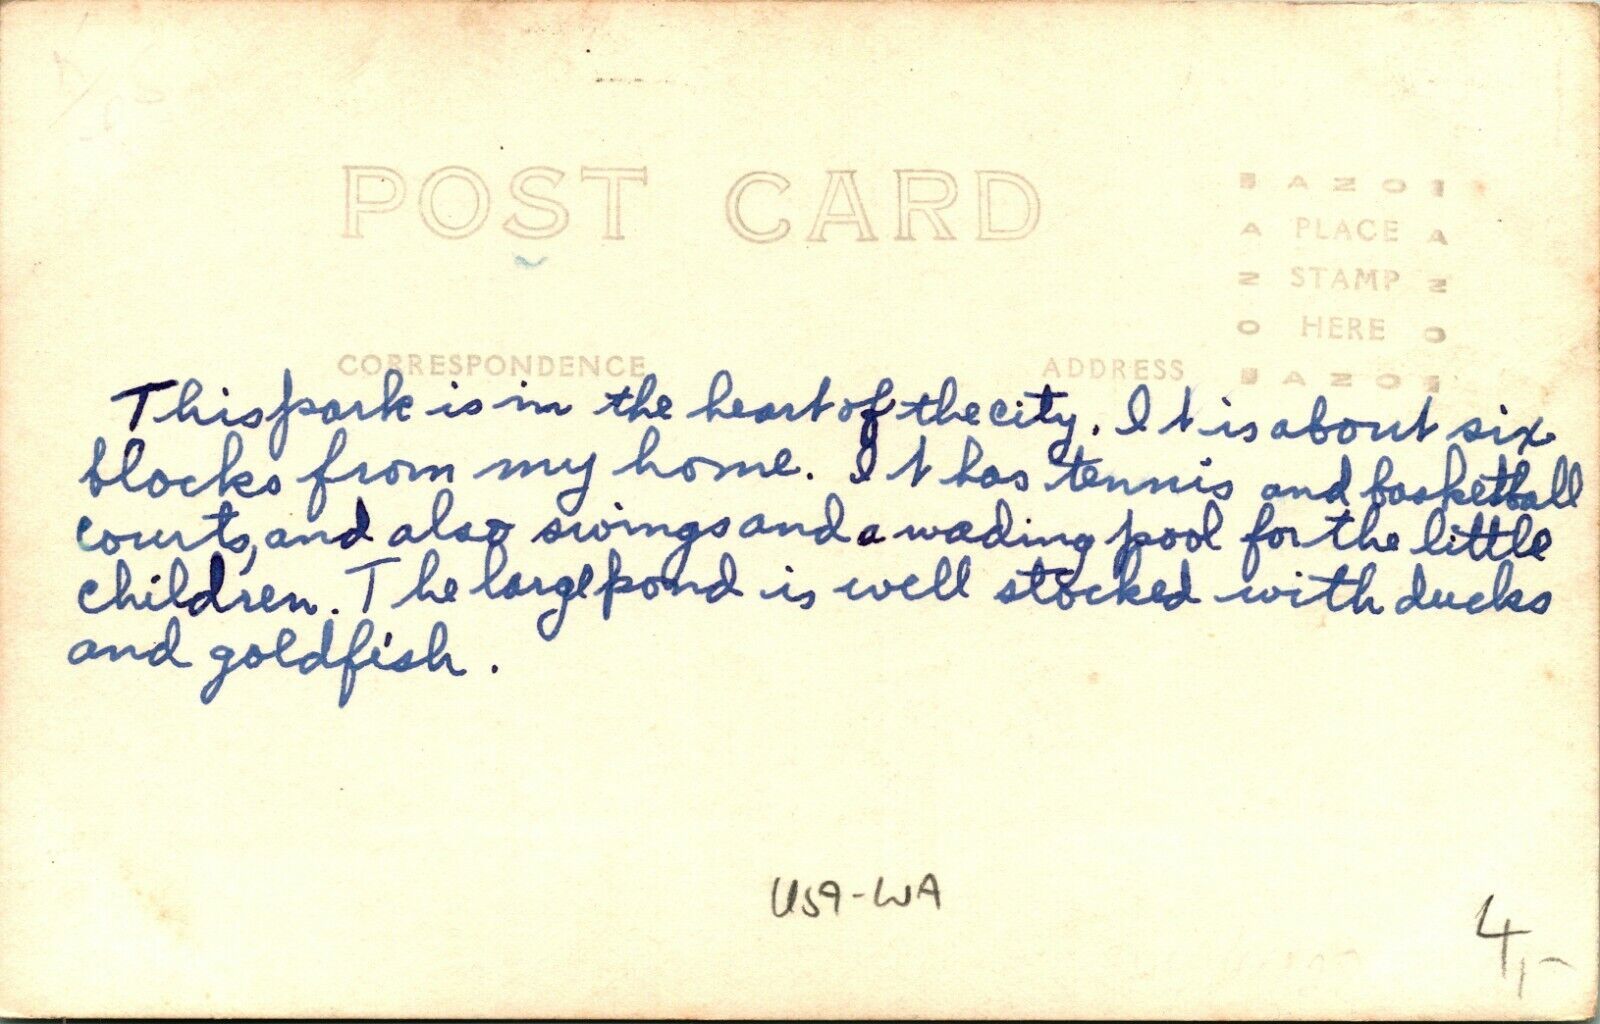 POST CARD
EAZOE
A PLACE A
Z STAMP Z
O HERE O
CORRESPONDENCE
ADDRESS
EAZOE
This park is in the heart of the city. It is about six
blocks from my home. It has tennis and basketball
courts, and also swings and a wading pool for the little
children. The large pond is well stocked with ducks
and goldfish.
USA-WA
4,-